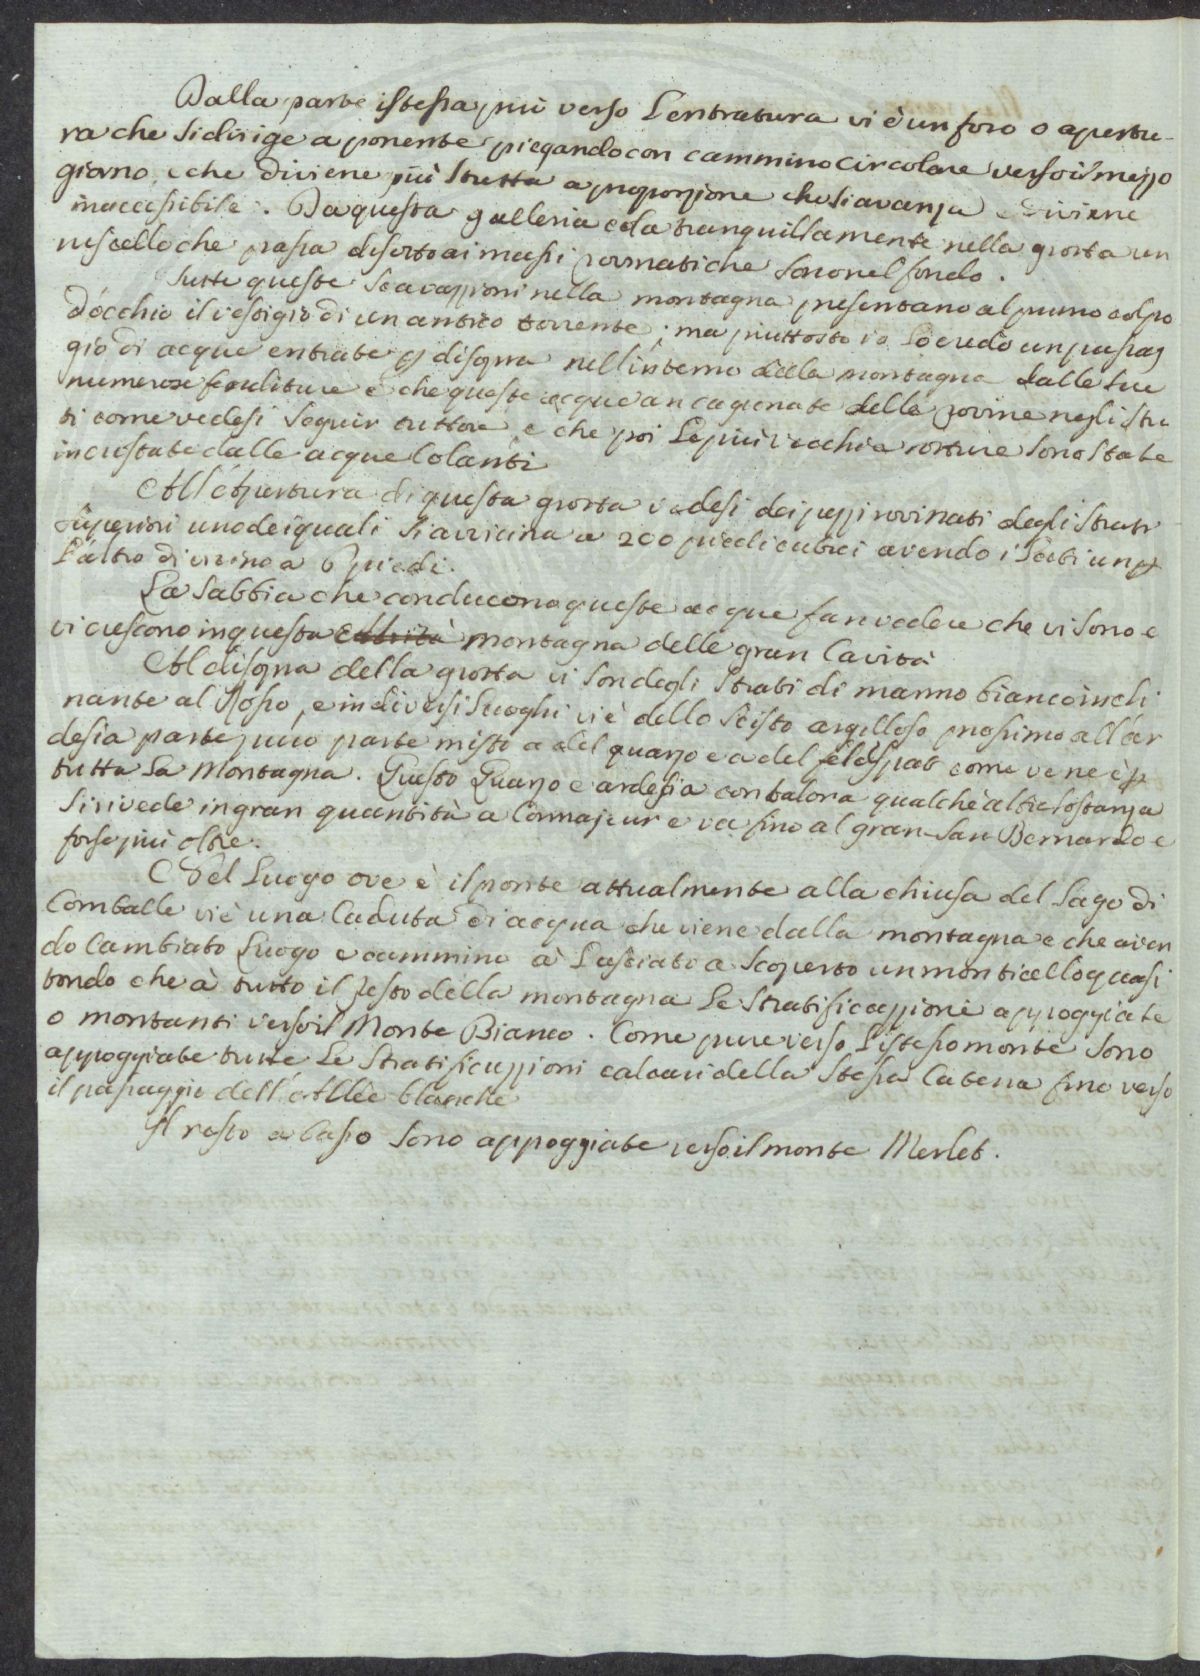 Dalla parte istessa più verso l'entratura vi è un foro o apertu-
ra che si dirige a ponente piegando con cammino circolare verso il mezzo
giorno, e che diviene più stretta a proporzione che si avanza e diviene
inaccessibile. Da questa galleria cola tranquillamente nella grotta un
ruscello che passa di sotto ai massi rovinati che sono nel fondo.
Tutte queste scavazzioni nella montagna presentano al primo colpo
d'occhio il vestigio di un antico torrente; ma piuttosto io lo credo un passag
gio di acque entrate p disopra nell'interno della montagna dalle sue
numerose fenditure e che queste acque an cagionate delle rovine negli stra
ti come vedesi seguir tuttora e che poi le più vecchie rotture sono state
incrostate dalle acque colanti
All'apertura di questa grotta vedesi dei pezzi rovinati degli strati
superiori uno dei quali si avvicina a 200 piedi cubici avendo i lati un p
l'altro di vicino a 6 piedi.
La sabbia che conducono queste acque fan vedere che vi sono e
vi crescono in questa montagna delle gran cavità
Al disopra della grotta vi son degli strati di marmo bianco incli
nante al rosso, e in diversi luoghi vi è dello scisto argilloso prossimo all'ar
desia parte puro parte misto a del quarzo e a del feldspat come ve ne è p
tutta la montagna. Questo quarzo e ardesia con talora qualche altra sostanza
si rivede in gran quantità a Cormajeur e va fino al gran San Bernardo e
forse più oltre.
Nel luogo ove è il ponte attualmente alla chiusa del lago di
Comballe vi è una caduta di acqua che viene dalla montagna e che aven
do cambiato luogo e cammino à lasciato a scoperto un monticello quasi
tondo che à tutto il resto della montagna le stratificazzioni appoggiate
o montanti verso il Monte Bianco. Come pure verso l'istesso monte sono
appoggiate tutte le stratificazzioni calcari della stessa catena fino verso
il passaggio dell'Allée blanche
Il resto a basso sono appoggiate verso il monte Merlet.